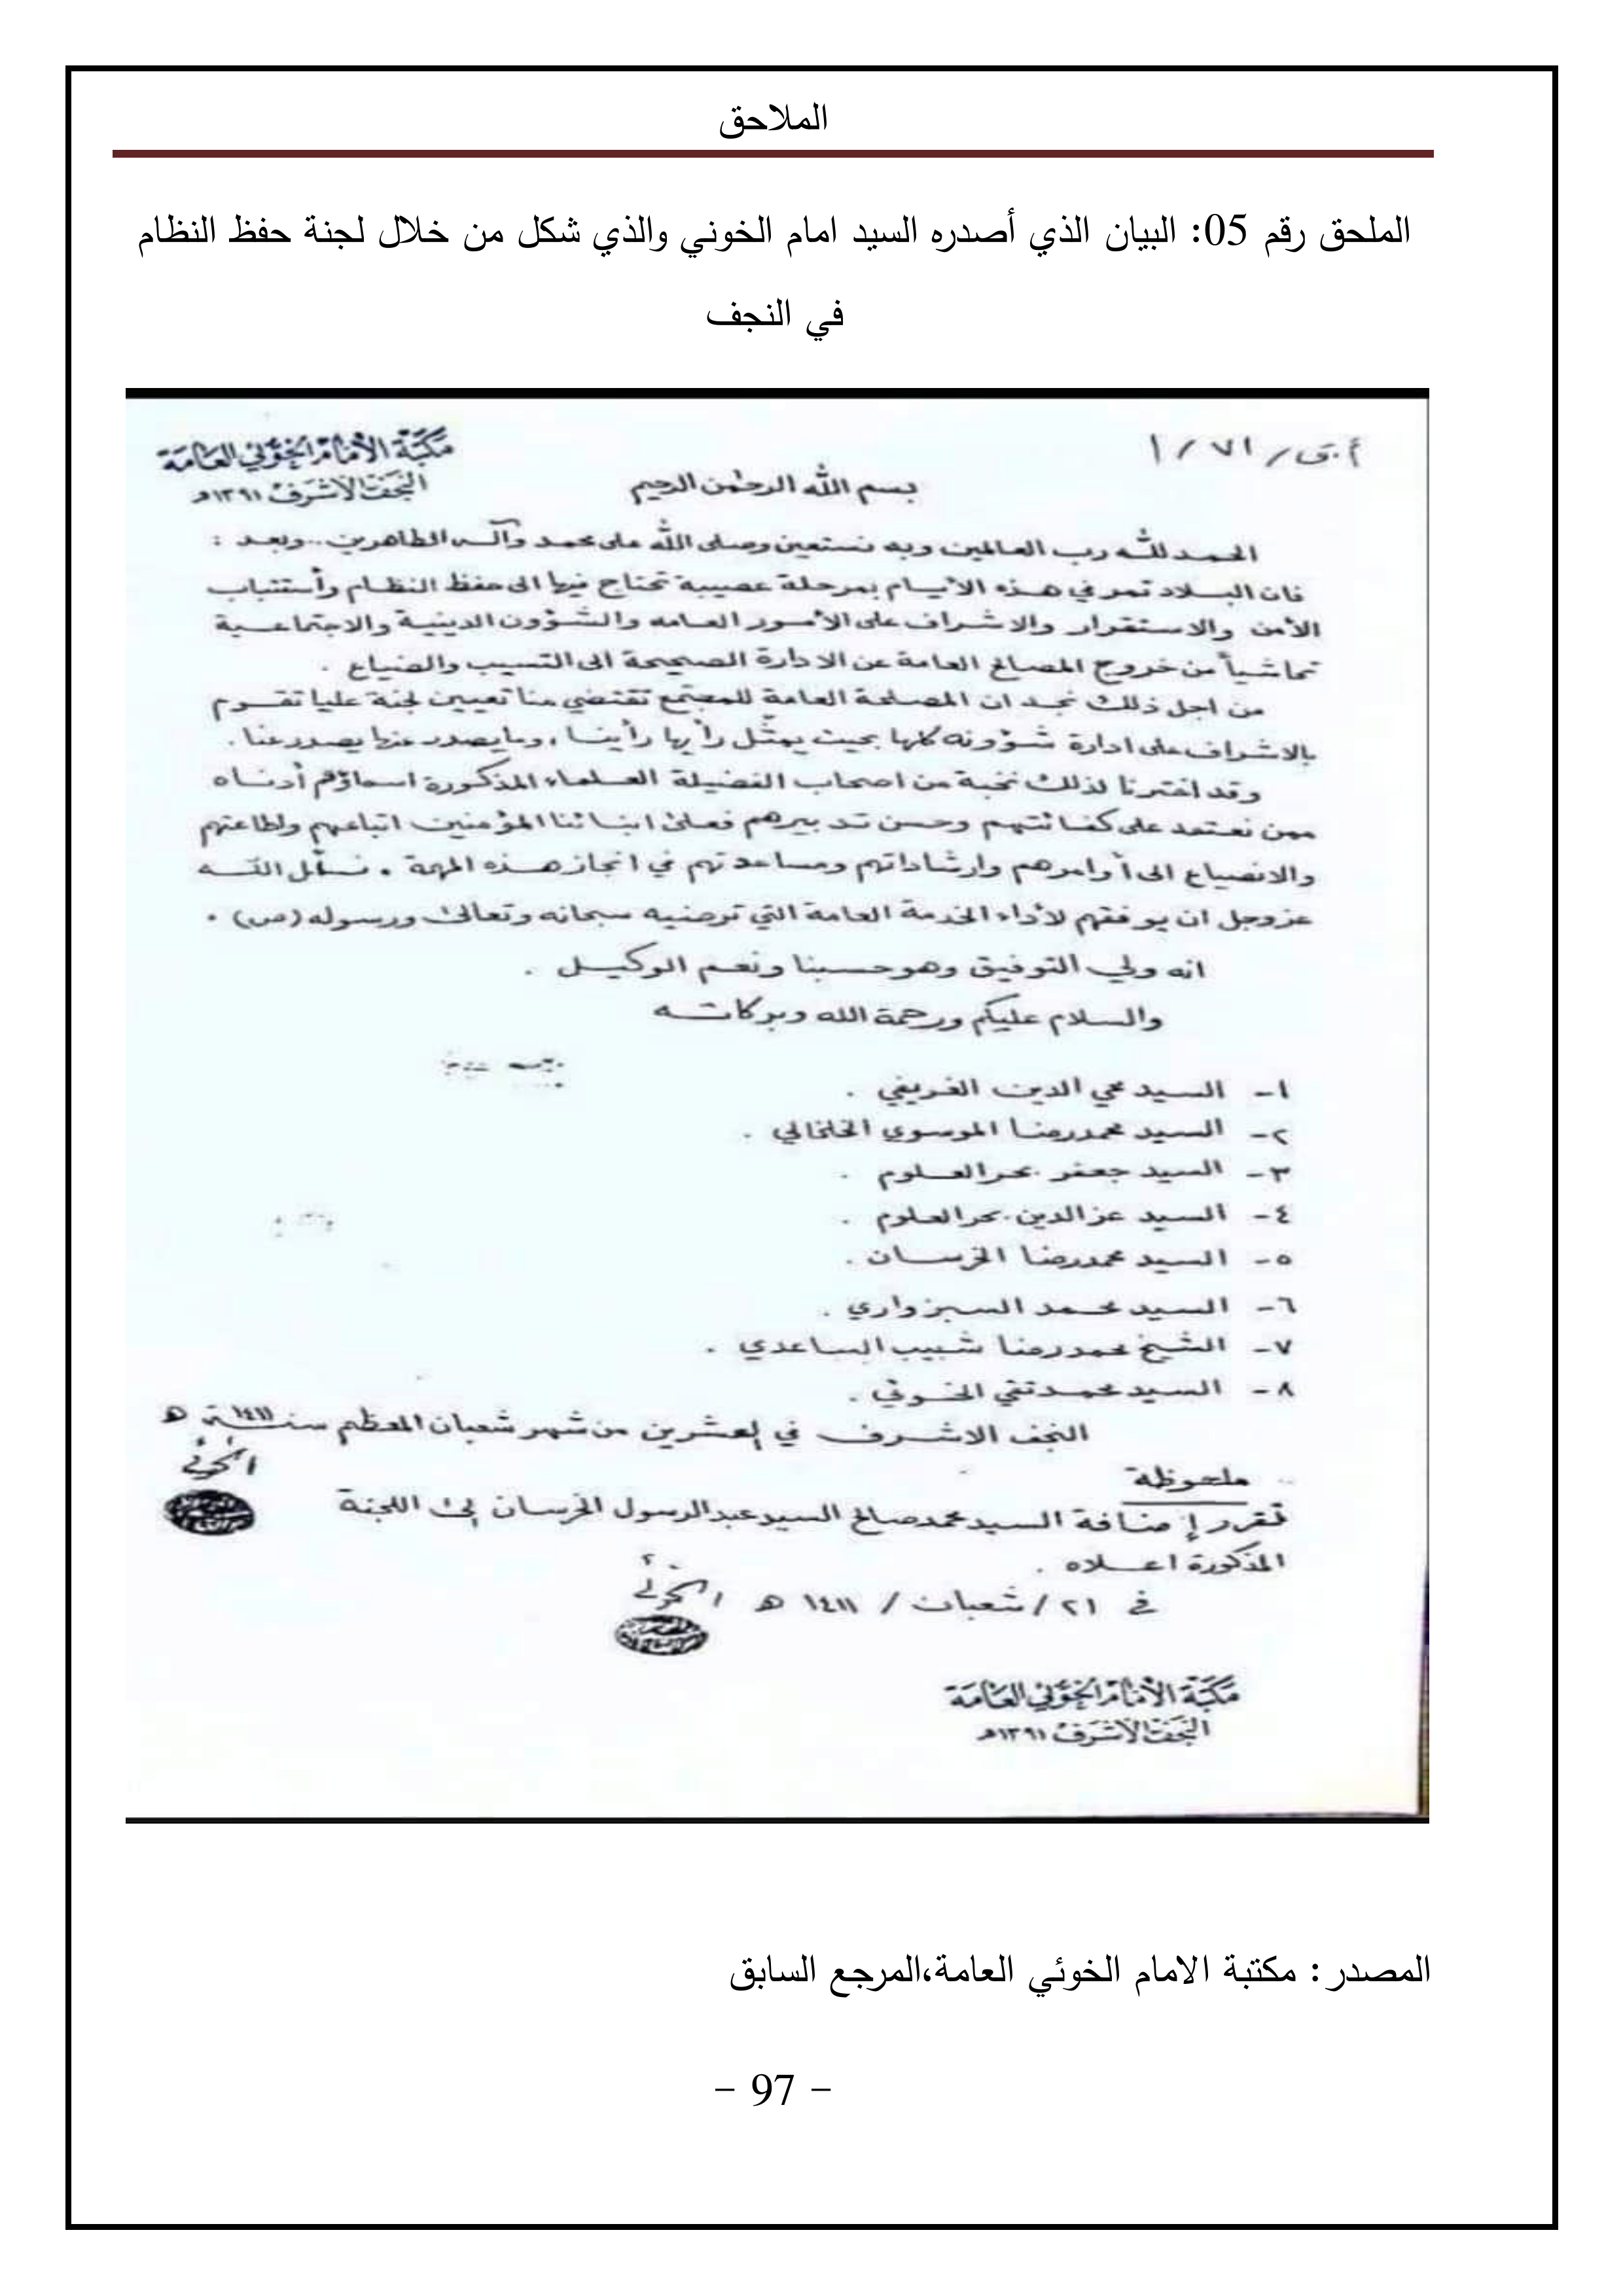 الملاحق
الملحق رقم 05: البيان الذي أصدره السيد امام الخوني والذي شكل من خلال لجنة حفظ النظام
في النجف
أ.ق/ ٧١ / ١
مكتبة الإمام الخوئي العامة
النجف الأشرف ١٣٩١هـ
بسم الله الرحمن الرحيم
الحمد لله رب العالمين وبه نستعين وصلى الله على محمد وآله الطاهرين.. وبعد :
فان البلاد تمر في هذه الأيام بمرحلة عصيبة تحتاج فيها الى حفظ النظام وأستتباب
الأمن والاستقرار والاشراف على الأمور العامه والشؤون الدينية والاجتماعية
تحاشياً من خروج المصالح العامة عن الادارة الصحيحة الى التسيب والضياع .
من اجل ذلك نجد ان المصلحة العامة للمجتمع تقتضي منا تعيين لجنة عليا تقوم
بالاشراف على ادارة شؤونه كلها بحيث يمثّل رأيها رأينا ، وما يصدر عنها يصدر عنا .
وقد اخترنا لذلك نخبة من اصحاب الفضيلة العلماء المذكورة اسماؤهم أدناه
ممن نعتمد على كفائتهم وحسن تدبيرهم فعلى ابنائنا المؤمنين اتباعهم واطاعتهم
والانصياع الى أوامرهم وارشاداتهم ومساعدتهم في انجاز هذه المهمة . نسأل الله
عزوجل ان يوفقهم لأداء الخدمة العامة التي ترضيه سبحانه وتعالى ورسوله (ص) .
انه ولي التوفيق وهو حسبنا ونعم الوكيل .
والسلام عليكم ورحمة الله وبركاته
١- السيد محي الدين الغريفي .
٢- السيد محمدرضا الموسوي الخلخالي .
٣- السيد جعفر بحرالعلوم .
٤- السيد عزالدين بحرالعلوم .
٥- السيد محمدرضا الخرسان .
٦- السيد محمد السبزواري .
٧- الشيخ محمدرضا شبيب الساعدي .
٨- السيد محمدتقي الخوئي .
النجف الاشرف في العشرين من شهر شعبان المعظم سنة ١٤١١ هـ
الخوئي
ملحوظة
تقرر إضافة السيد محمدصالح السيد عبدالرسول الخرسان الى اللجنة
المذكورة اعلاه .
في ٢١ / شعبان / ١٤١١ هـ الخوئي
مكتبة الإمام الخوئي العامة
النجف الأشرف ١٣٩١هـ
المصدر: مكتبة الامام الخوئي العامة،المرجع السابق
- 97 -